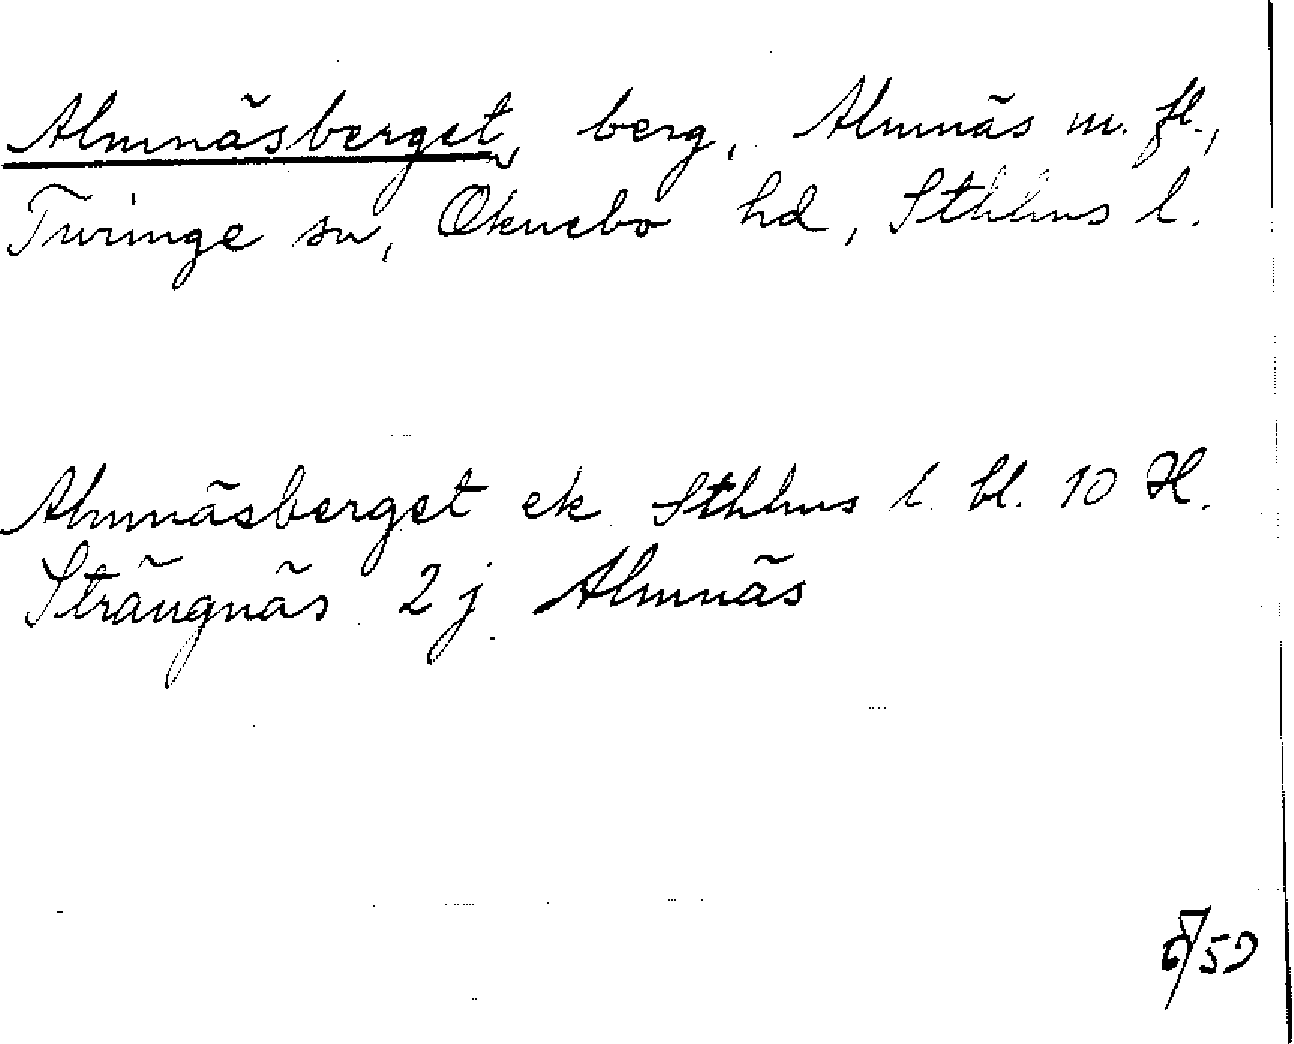 Almnäsberget, berg, Almnäs m. fl.,
Turinge sn, Öknebo hd, Sthlms l.
Almnäsberget ek Sthlms l. bl. 10 H.
Strängnäs 2 j Almnäs
/59